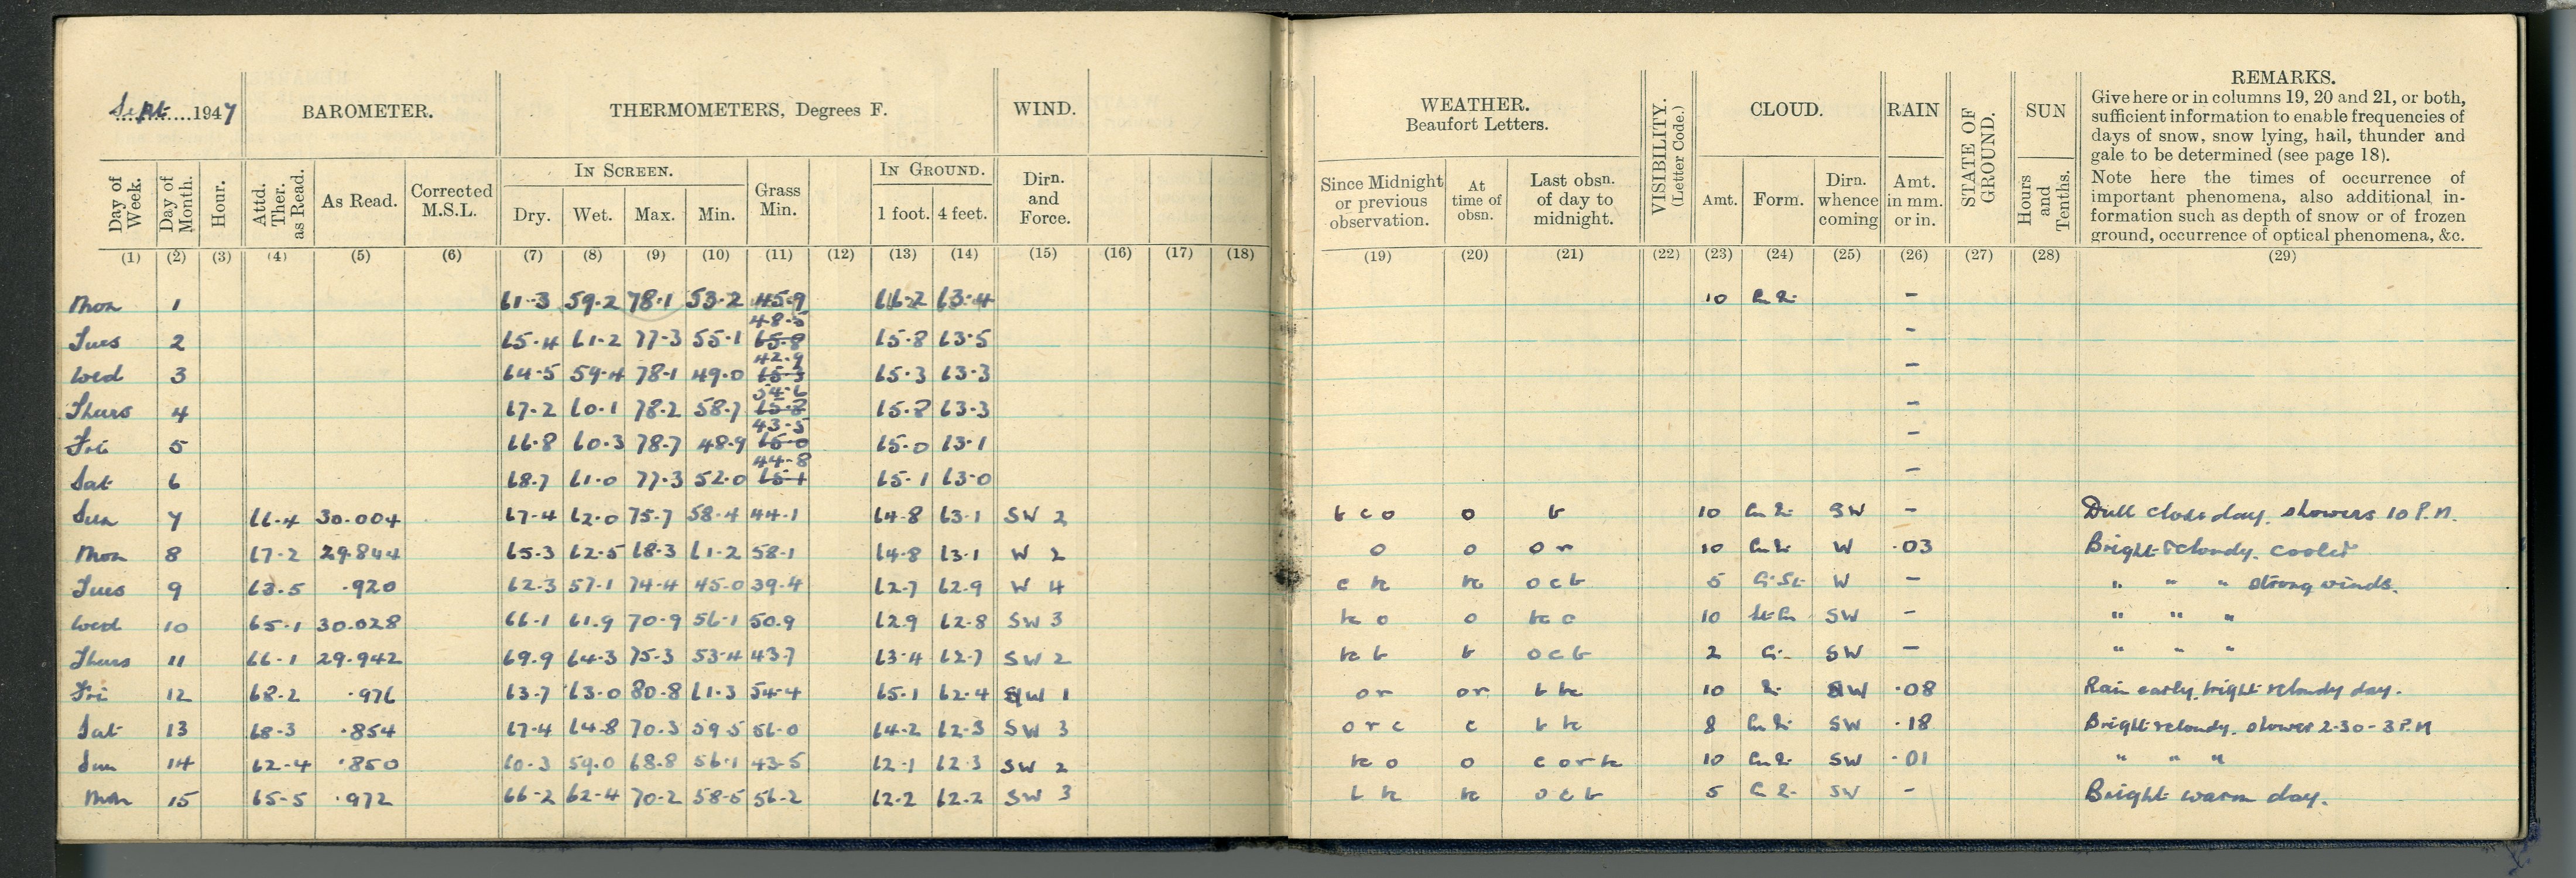 Sept. 1947
BAROMETER.
THERMOMETERS, Degrees F.
WIND.
WEATHER.
Beaufort Letters.
VISIBILITY.
(Letter Code.)
CLOUD.
RAIN
STATE OF
GROUND.
SUN
REMARKS.
Give here or in columns 19, 20 and 21, or both,
sufficient information to enable frequencies of
days of snow, snow lying, hail, thunder and
gale to be determined (see page 18).
Note here the times of occurrence of
important phenomena, also additional in-
formation such as depth of snow or of frozen
ground, occurrence of optical phenomena, &c.
Day of Week. Day of Month. Hour. Attd. Ther. as Read. As Read. Corrected M.S.L.
IN SCREEN. Dry. Wet. Max. Min. Grass Min. IN GROUND. 1 foot. 4 feet. Dirn. and Force.
Since Midnight or previous observation. At time of obsn. Last obsn. of day to midnight. Amt. Form. Dirn. whence coming Amt. in mm. or in. Hours and Tenths.
(1) (2) (3) (4) (5) (6) (7) (8) (9) (10) (11) (12) (13) (14) (15) (16) (17) (18) (19) (20) (21) (22) (23) (24) (25) (26) (27) (28) (29)
Mon 1 61.3 59.2 78.1 53.2 45.9 66.2 63.4 10 -
Tues 2 65.4 61.2 77.3 55.1 48.5 65.8 65.8 63.5 -
Wed 3 64.5 59.4 78.1 49.0 42.9 65.3 65.3 63.3 -
Thurs 4 67.2 60.1 78.2 58.7 54.6 65.8 65.8 63.3 -
Fri 5 66.8 60.3 78.7 48.9 43.5 65.0 65.0 63.1 -
Sat 6 68.7 61.0 77.3 52.0 44.8 65.1 65.1 63.0 -
Sun 7 66.4 30.004 67.4 62.0 75.7 58.4 44.1 64.8 63.1 SW 2 b c o o b 10 SW - Dull close day. showers 10 P.M.
Mon 8 67.2 29.844 65.3 62.5 68.3 61.2 58.1 64.8 63.1 W 2 o o o r 10 W .03 Bright & cloudy. cooler
Tues 9 63.5 .920 62.3 57.1 74.4 45.0 39.4 62.7 62.9 W 4 c bc bc o c b 5 Ci-St W - " " " strong winds.
Wed 10 65.1 30.028 66.1 61.9 70.9 56.1 50.9 62.9 62.8 SW 3 bc o o bc o 10 SW - " " "
Thurs 11 66.1 29.942 69.9 64.3 75.3 53.4 43.7 63.4 62.7 SW 2 bc b b o c b 2 Ci SW - " " "
Fri 12 68.2 .976 63.7 63.0 80.8 61.3 54.4 65.1 62.4 W 1 o r o r b bc 10 W .08 Rain early, bright & cloudy day.
Sat 13 68.3 .854 67.4 64.8 70.3 59.5 56.0 64.2 62.3 SW 3 o r c c b bc 8 SW .18 Bright & cloudy. shower 2-30 - 3 P.M
Sun 14 62.4 .850 60.3 59.0 68.8 56.1 43.5 62.1 62.3 SW 2 bc o o c o r bc 10 SW .01 " " "
Mon 15 65.5 .972 66.2 62.4 70.2 58.5 56.2 62.2 62.2 SW 3 b bc bc o c b 5 SW - Bright warm day.